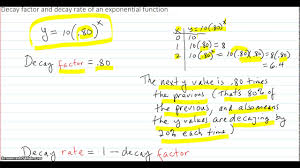 Decay factor and decay rate of an exponential function
y = 10(.80)^x
x | y=10(.80)^x
0 | 10
1 | 10(.80)=8
2 | 10(.80)^2=10(.80)(.80)=8(.80)
=6.4
Decay factor = .80
The next y value is .80 times
the previous (that's 80% of
the previous, and also means
the y values are decaying by
20% each time)
Decay rate = 1 - decay factor